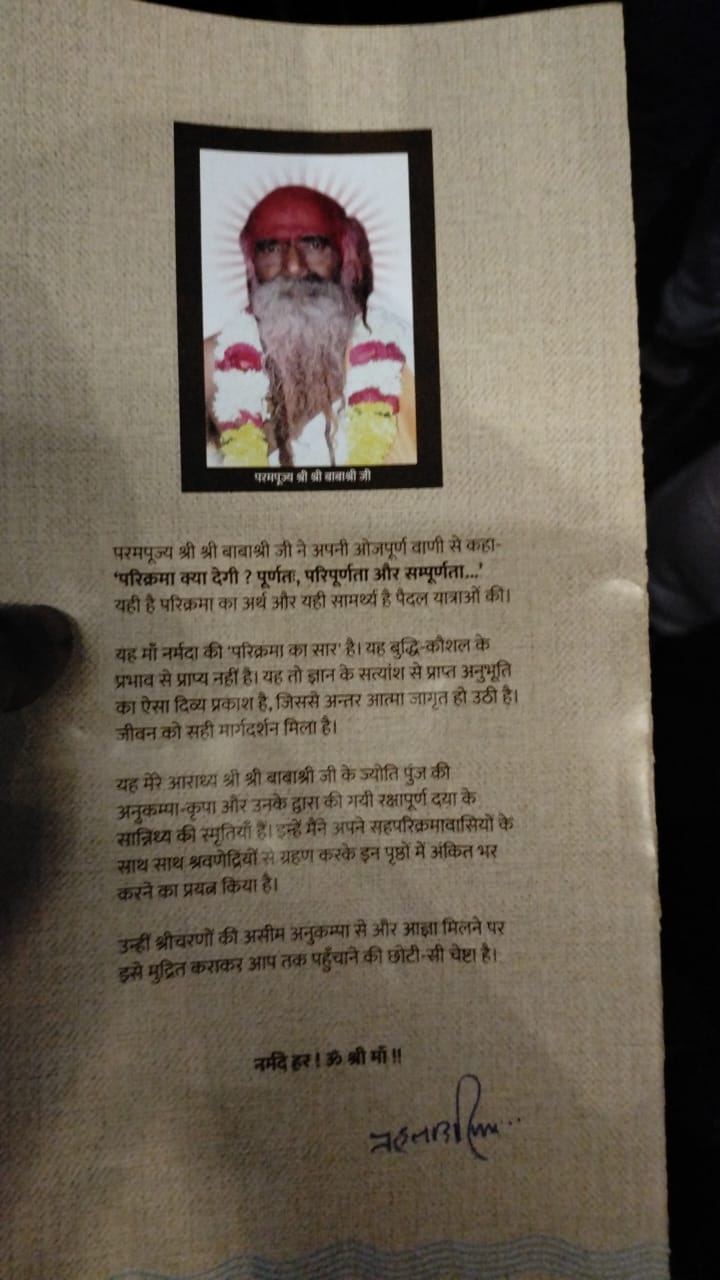 परमपूज्य श्री श्री बाबाश्री जी
परमपूज्य श्री श्री बाबाश्री जी ने अपनी ओजपूर्ण वाणी से कहा-
‘परिक्रमा क्या देगी ? पूर्णतः, परिपूर्णता और सम्पूर्णता...’
यही है परिक्रमा का अर्थ और यही सामर्थ्य है पैदल यात्राओं की।
यह माँ नर्मदा की ‘परिक्रमा का सार’ है। यह बुद्धि-कौशल के
प्रभाव से प्राप्य नहीं है। यह तो ज्ञान के सत्यांश से प्राप्त अनुभूति
का ऐसा दिव्य प्रकाश है, जिससे अन्तर आत्मा जागृत हो उठी है।
जीवन को सही मार्गदर्शन मिला है।
यह मेरे आराध्य श्री श्री बाबाश्री जी के ज्योति पुंज की
अनुकम्पा-कृपा और उनके द्वारा की गयी रक्षापूर्ण दया के
सान्निध्य की स्मृतियाँ हैं। इन्हें मैंने अपने सहपरिक्रमावासियों के
साथ साथ श्रवणेद्रियों से ग्रहण करके इन पृष्ठों में अंकित भर
करने का प्रयत्न किया है।
उन्हीं श्रीचरणों की असीम अनुकम्पा से और आज्ञा मिलने पर
इसे मुद्रित कराकर आप तक पहुँचाने की छोटी-सी चेष्टा है।
नर्मदे हर ! ॐ श्री माँ !!